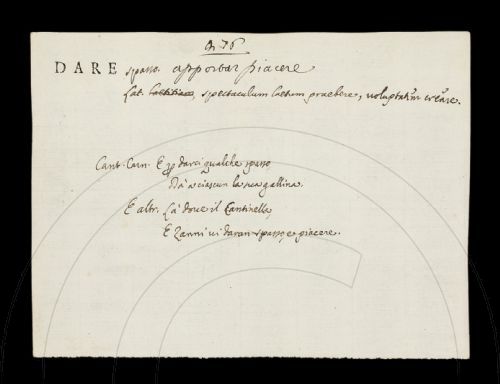 DARE spasso. apportar piacere
Lat. laetitiam, spectaculum laetum praebere, voluptatem creare.
Cant. Carn. E p darci qualche spasso
Dà a ciascun la sua gallina.
E altr. Là dove il Cantinella
E Zanni vi daran spasso, e piacere.